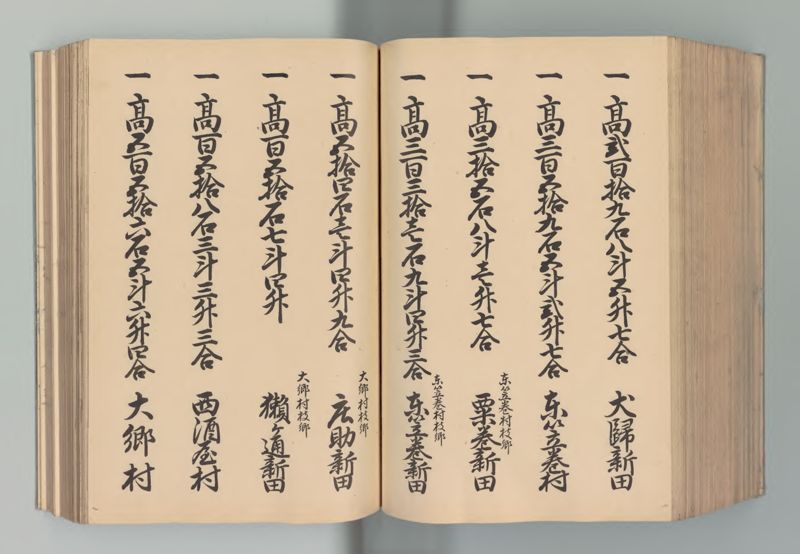 一 高弐百拾九石八斗五升七合 犬歸新田
一 高三百五拾九石五斗弐升七合 东笠巻村
东笠巻村枝郷
一 高三拾五石八斗壱升七合 粟巻新田
东笠巻村枝郷
一 高三百三拾壱石九斗四升三合 东笠巻新田
大郷村枝郷
一 高五拾四石壱斗四升九合 庄助新田
大郷村枝郷
一 高百五拾石七斗四升 獺ヶ通新田
一 高百五拾八石三斗三升三合 西酒屋村
一 高五百五拾六石五斗六升四合 大郷村